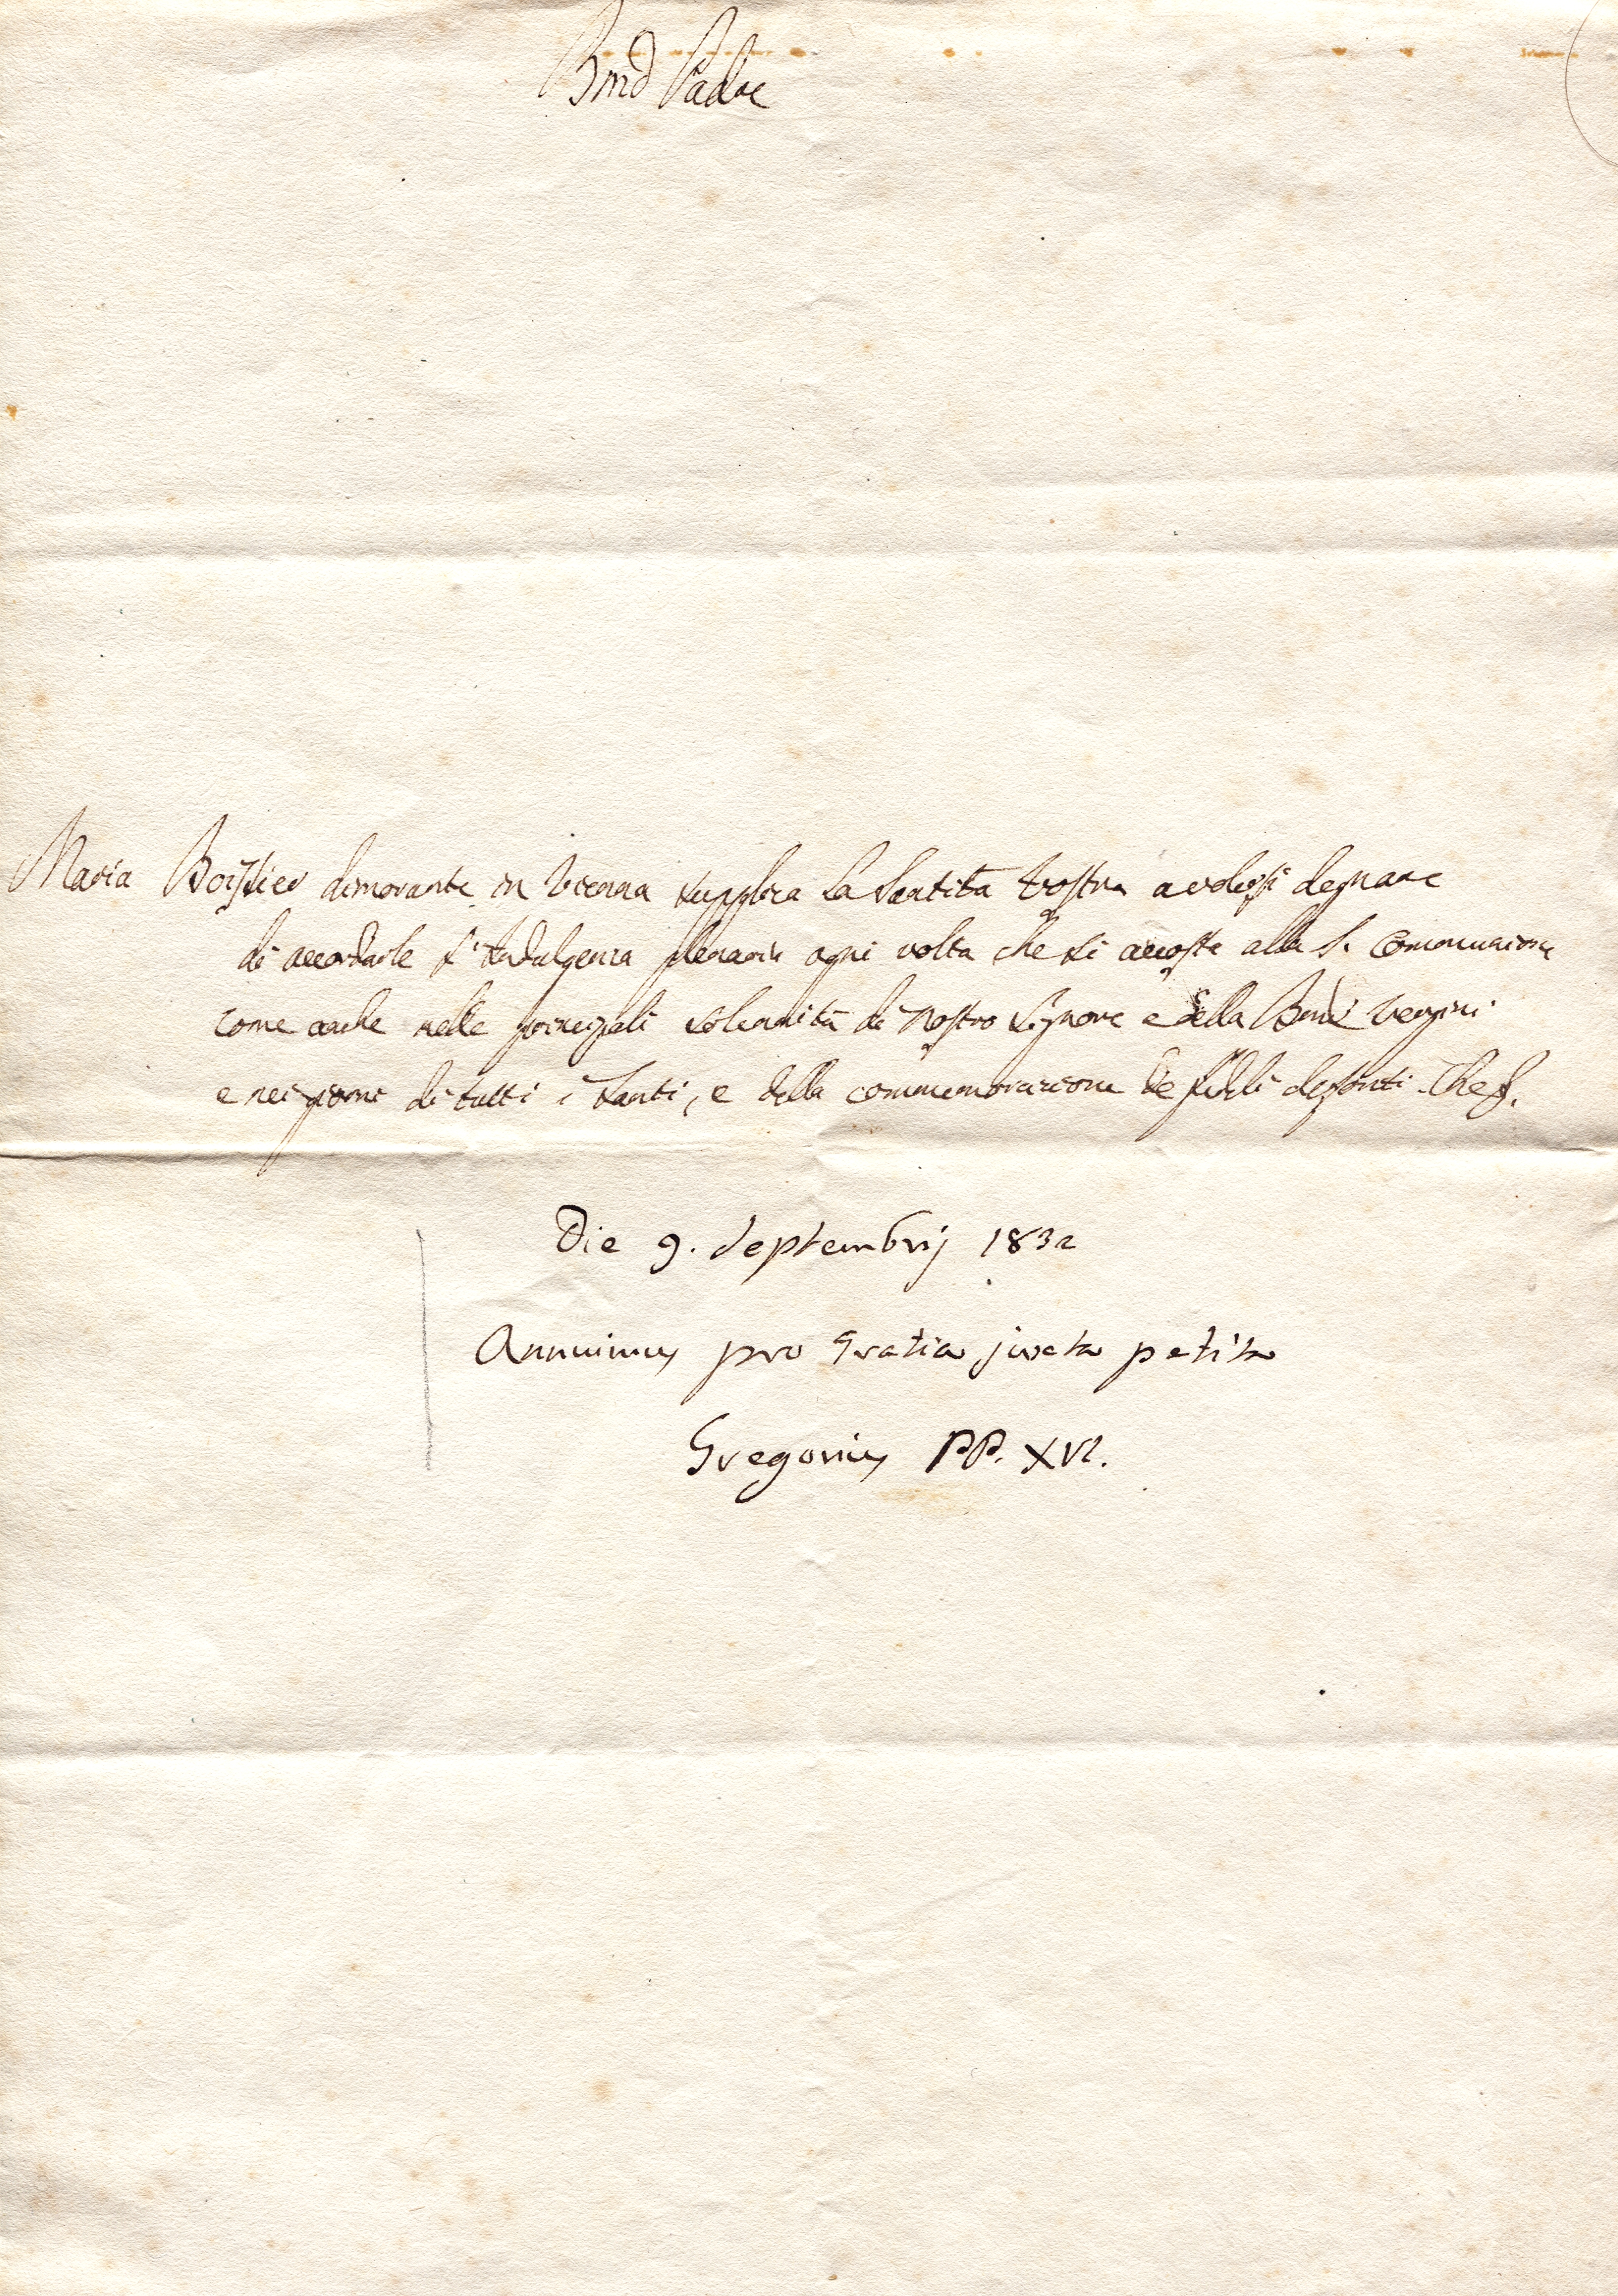 Bmo Padre
Maria Boissier dimorante in Vienna supplica la Santità Vostra a volersi degnare
di accordarle l'Indulgenza plenaria ogni volta che si accosta alla S. Communione
come anche nelle principali solennità di Nostro Signore e della Vergini
e nei giorni di tutti i Santi, e della commemorazione de fideli defonti. Che f.
Die 9. Septembrij 1832
Annuimus pro Gratia juxta petita
Gregorius PP. XVI.